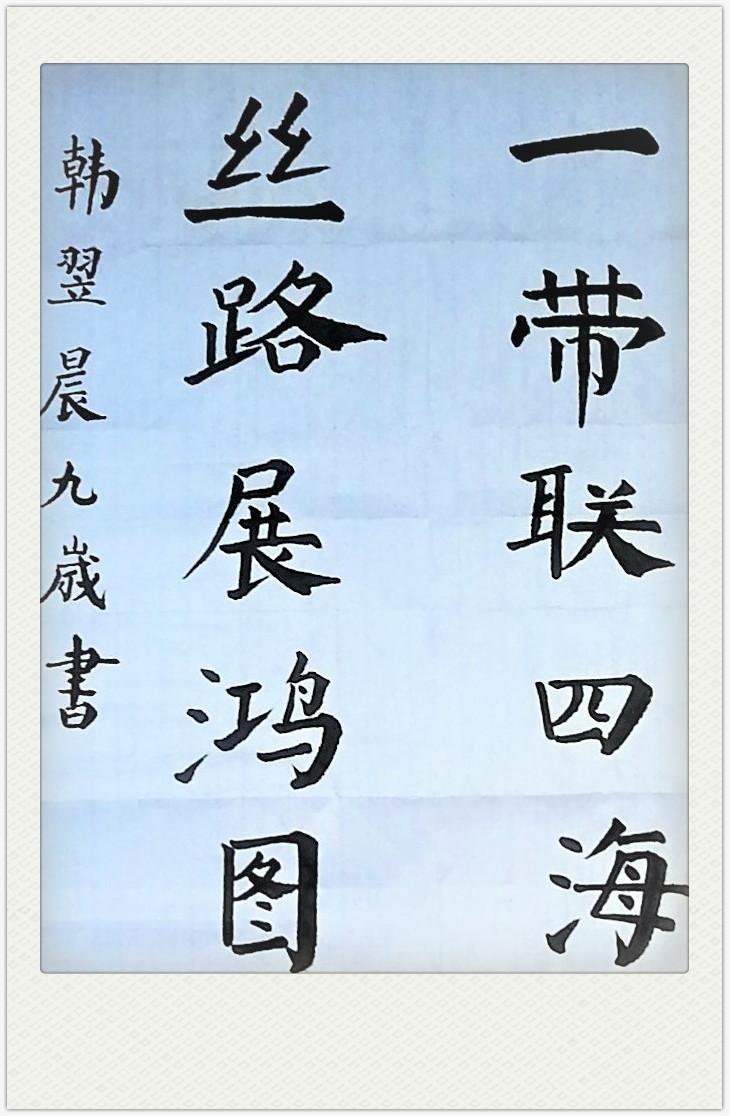 一带联四海
丝路展鸿图
韩翌晨九岁书